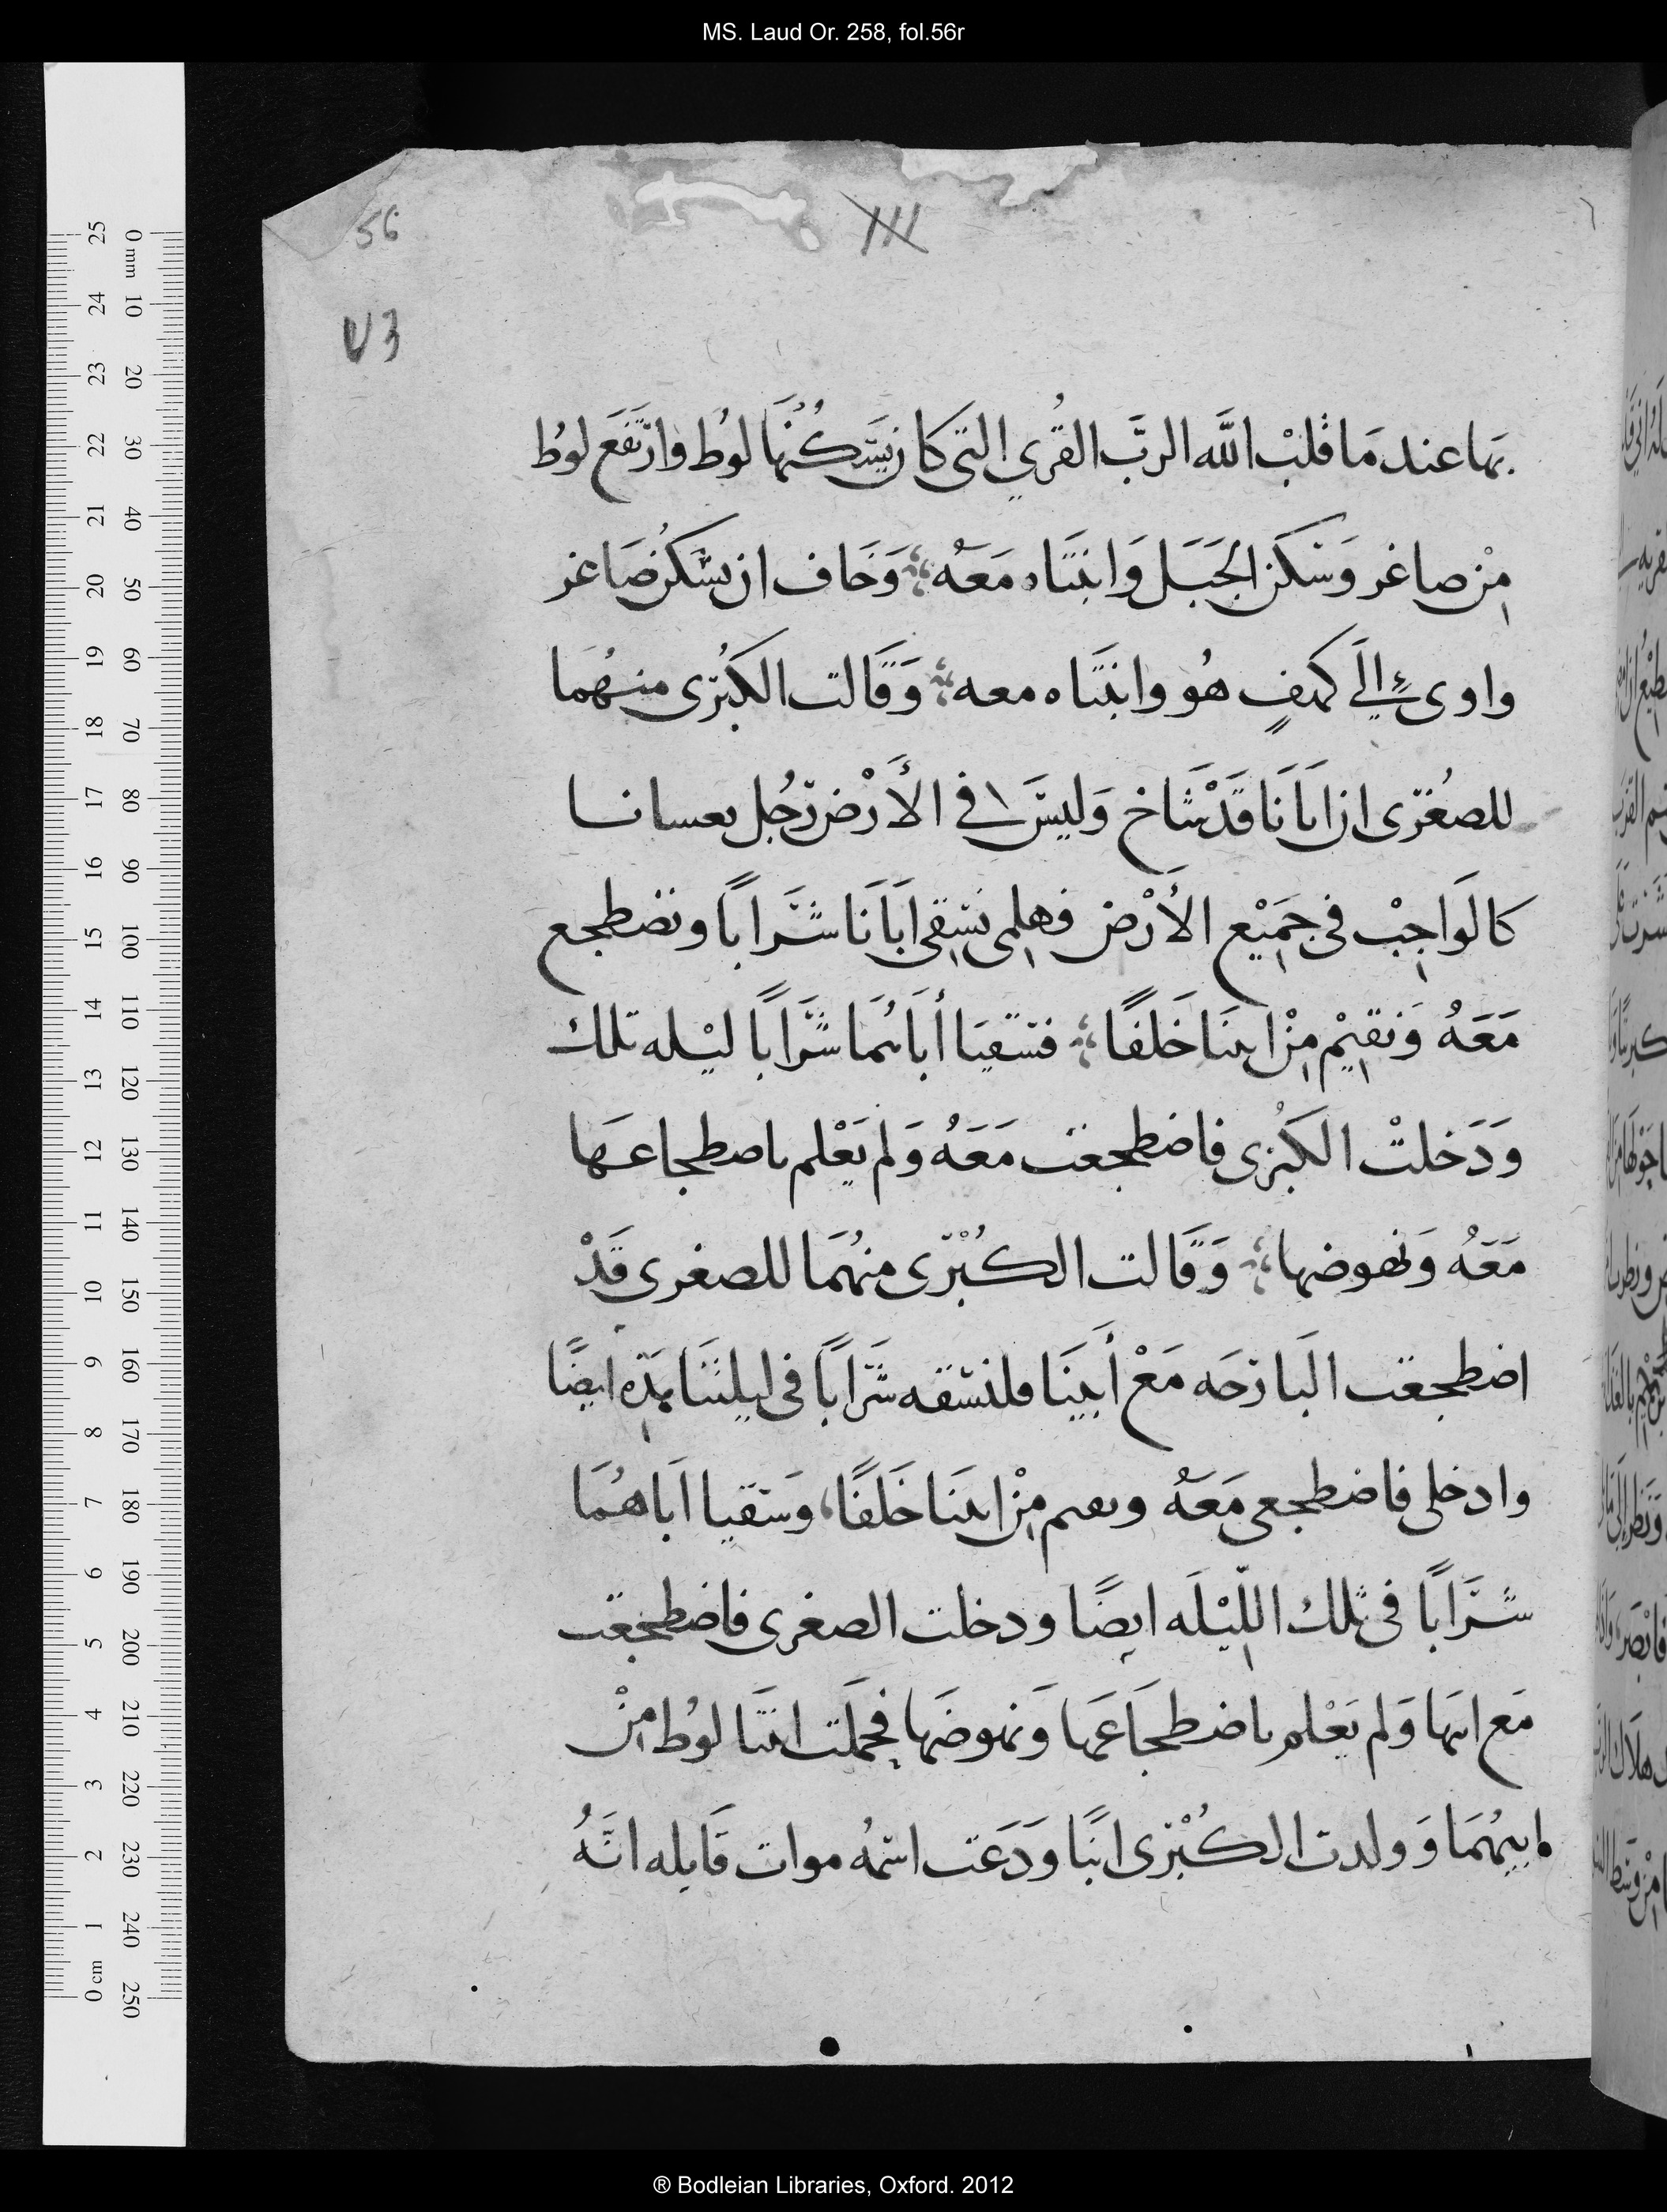 MS. Laud Or. 258, fol.56r
56
111
بها عند مَا قلبْ اللَّه الربَّ القُري التى كان يَسَكُنُهَا لوُط وارتَفَعَ لوُط
مِنْ صاغر وَسَكَنَ الجَبَلَ وَابنَتَاه مَعَهُ وَخَاف ان يسْكُنَ صَاغر
واوى إليَ كهفٍ هُو وابنَتَاه معه وَقَالت الكُبرَى منهُمَا
للصغُرَى ان ابَانَا قَدْ شَاخ وَليسَ فى الأَرْض رَجُل يعسانا
كالوَاجِبْ فى جَمَيْع الأَرْض فهلمى نسِقى ابَانَا شَرَاباً ونضطجع
مَعَهُ وَنقيْم مِنْ ابينَا خَلَفًا فسَقيَا أبَاهُمَا شَرَابًا ليْله تلك
وَدَخلتْ الكُبرَى فاضطجعت مَعَهُ وَلم يَعْلم باضطجاعهَا
مَعَهُ وَنهوضها وَقَالت الكُبْرَى منهُمَا للصغرى قَدْ
اضطجعت البَارحَه مَعْ أَبينَا فلنسقه شَرَابًا فى ليلتنَا هَذِه ايضًا
وادخلى فاضطجعى مَعَهُ ونقيم مِنْ ابينَا خَلَفًا وسَقيا ابَاهُمَا
شَرَابًا فى تلك اللّيْلَه ايضًا ودخلت الصغرى فاضطجعت
مَع ابيهَا وَلم يَعْلم باضطجَاعَهَا وَنهوضَهَا فحَمَلت ابنتَا لوُط مِنْ
ابيهُمَا وَولدت الكُبْرَى ابنًا وَدَعَت اسمهُ مواب قَايله انَّهُ
0 mm 10 20 30 40 50 60 70 80 90 100 110 120 130 140 150 160 170 180 190 200 210 220 230 240 250
25 24 23 22 21 20 19 18 17 16 15 14 13 12 11 10 9 8 7 6 5 4 3 2 1 0 cm
® Bodleian Libraries, Oxford. 2012